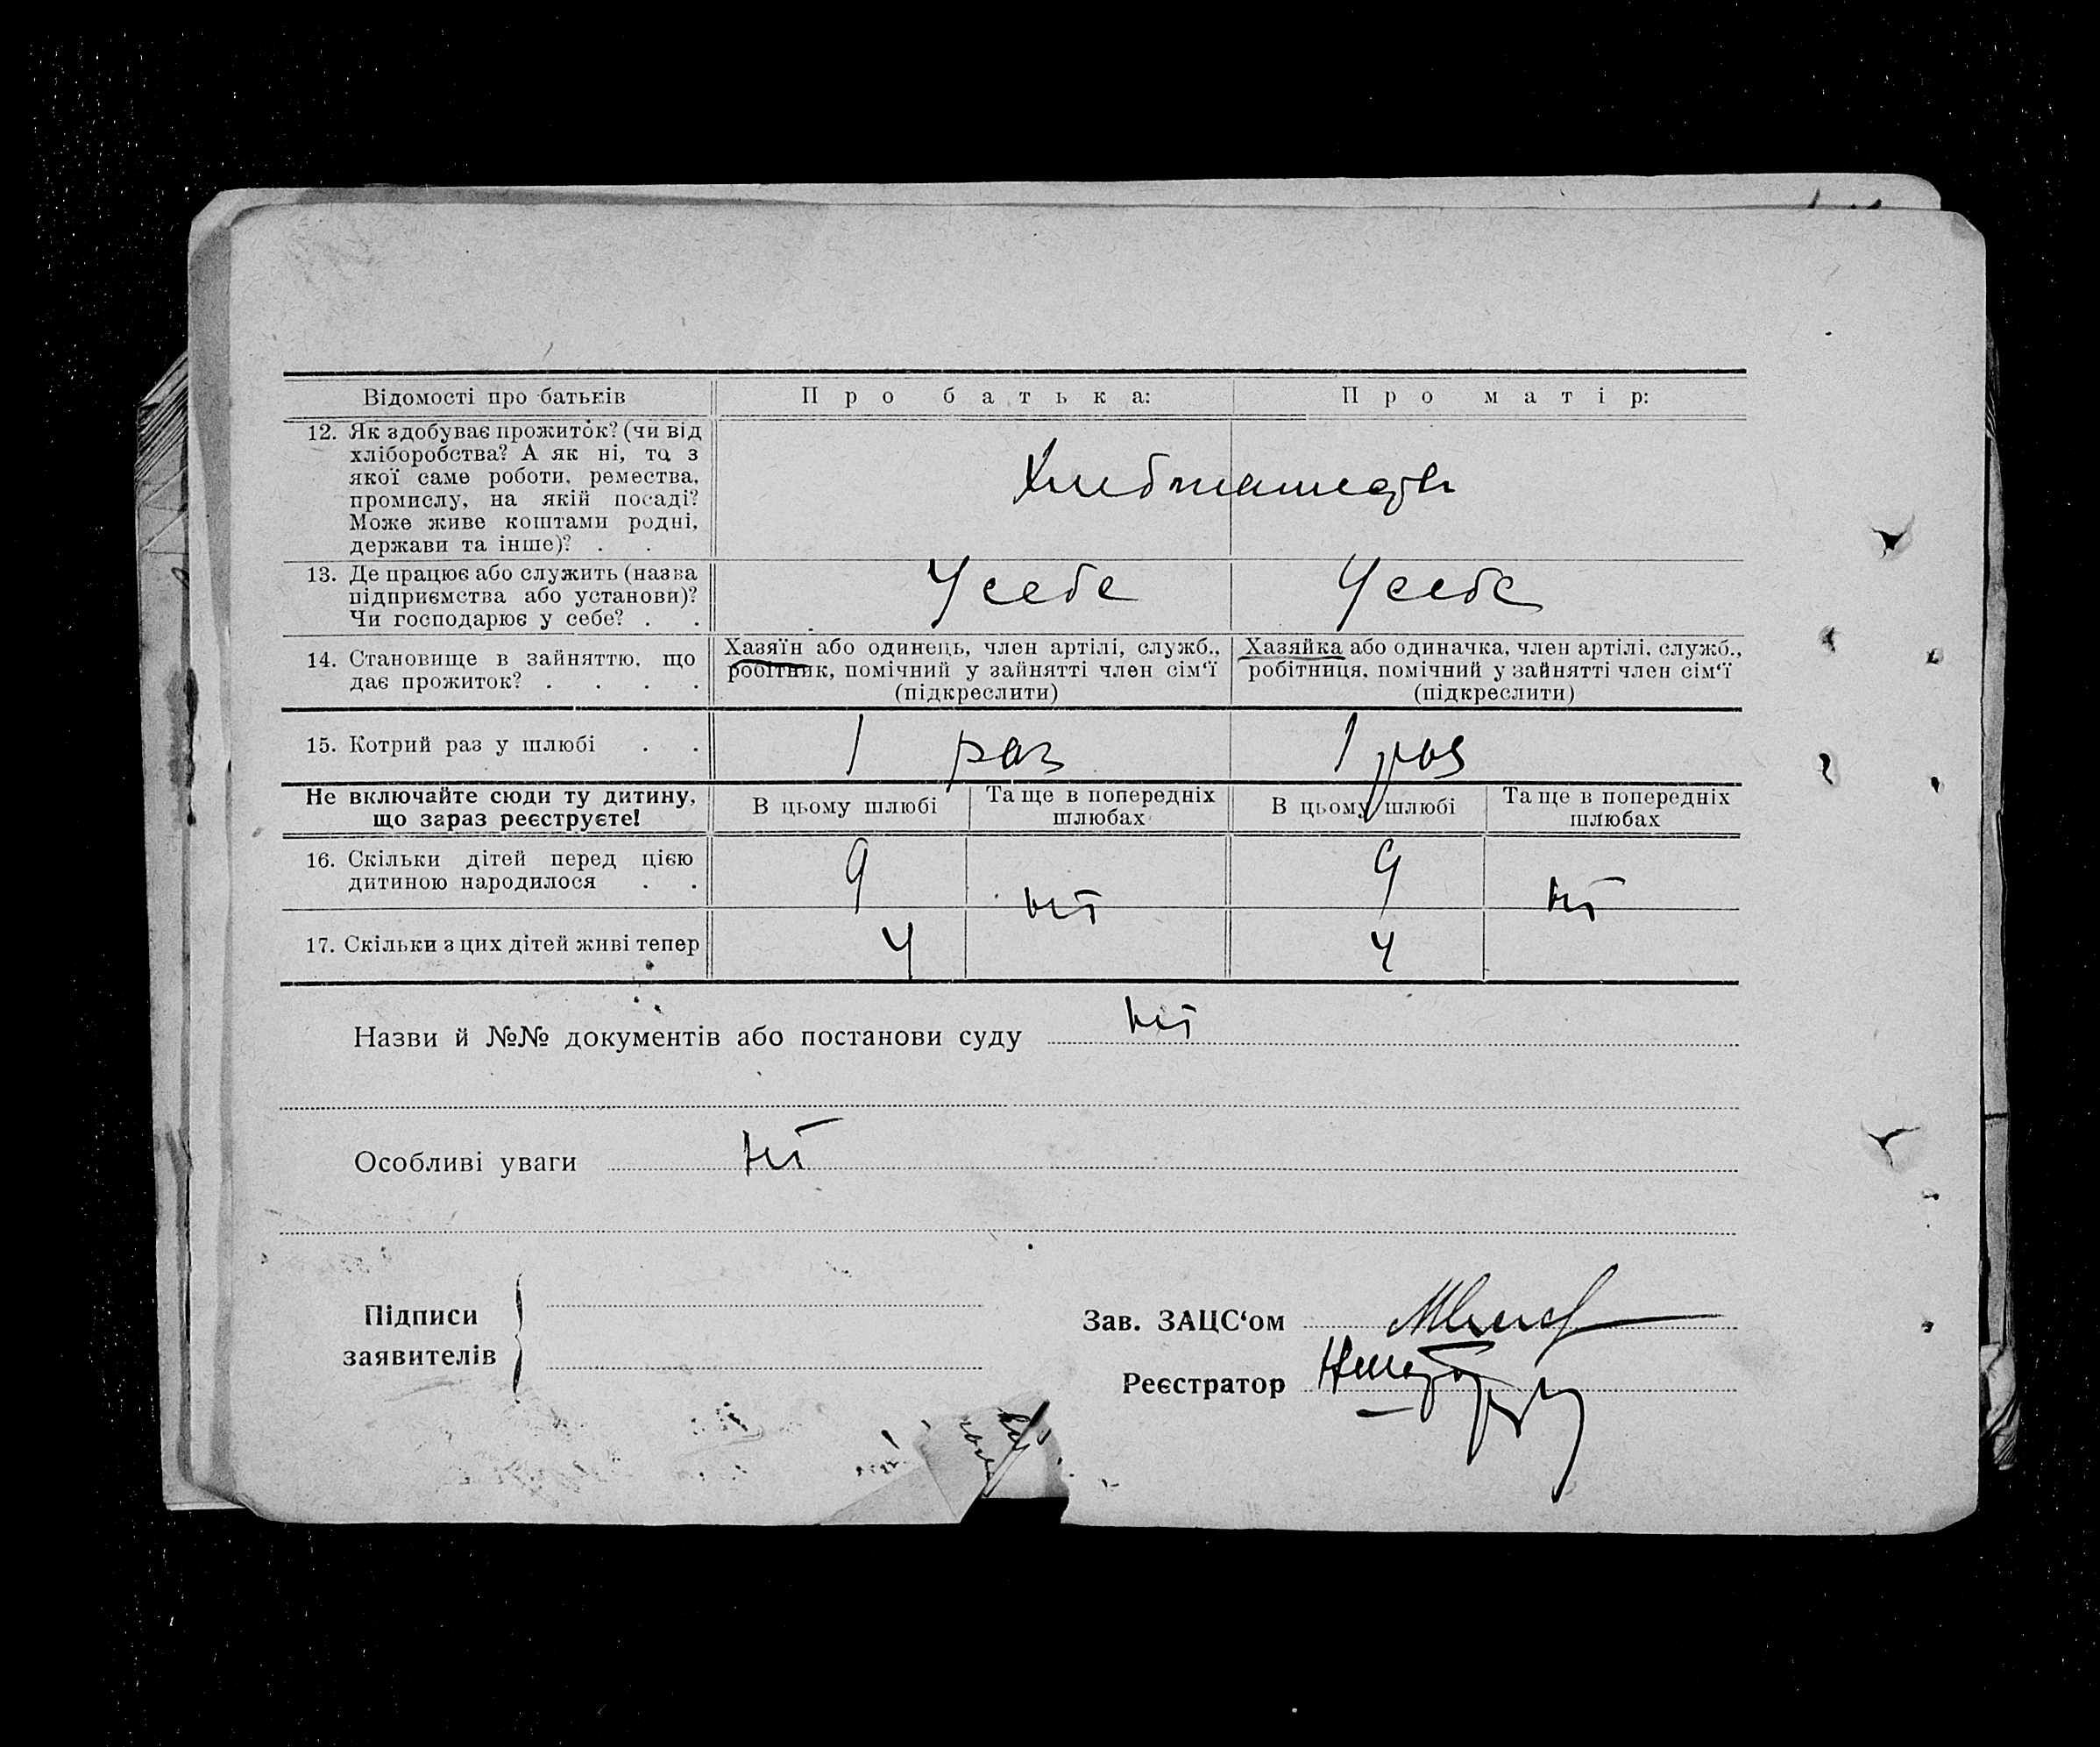 Відомості про батьків
Про батька:
Про матір:
12. Як здобуває прожиток? (чи від
хліборобства? А як ні, то з
якої саме роботи, ремества,
промислу, на якій посаді?
Може живе коштами родні,
держави та інше)? . .
13. Де працює або служить (назва
підприємства або установи)?
Чи господарює у себе? . .
У себе
У себе
14. Становище в зайняттю, що
дає прожиток? . . . .
Хазяїн або одинець, член артілі, служб.,
робітник, помічний у зайнятті член сім'ї
(підкреслити)
Хазяйка або одиначка, член артілі, служб.,
робітниця, помічний у зайнятті член сім'ї
(підкреслити)
15. Котрий раз у шлюбі . .
1 раз
1 раз
Не включайте сюди ту дитину,
що зараз реєструєте!
В цьому шлюбі
Та ще в попередніх
шлюбах
В цьому шлюбі
Та ще в попередніх
шлюбах
16. Скільки дітей перед цією
дитиною народилося . .
9
ні
9
ні
17. Скільки з цих дітей живі тепер
4
4
Назви й №№ документів або постанови суду ні
Особливі уваги ні
Підписи
заявителів
Зав. ЗАЦС'ом
Реєстратор